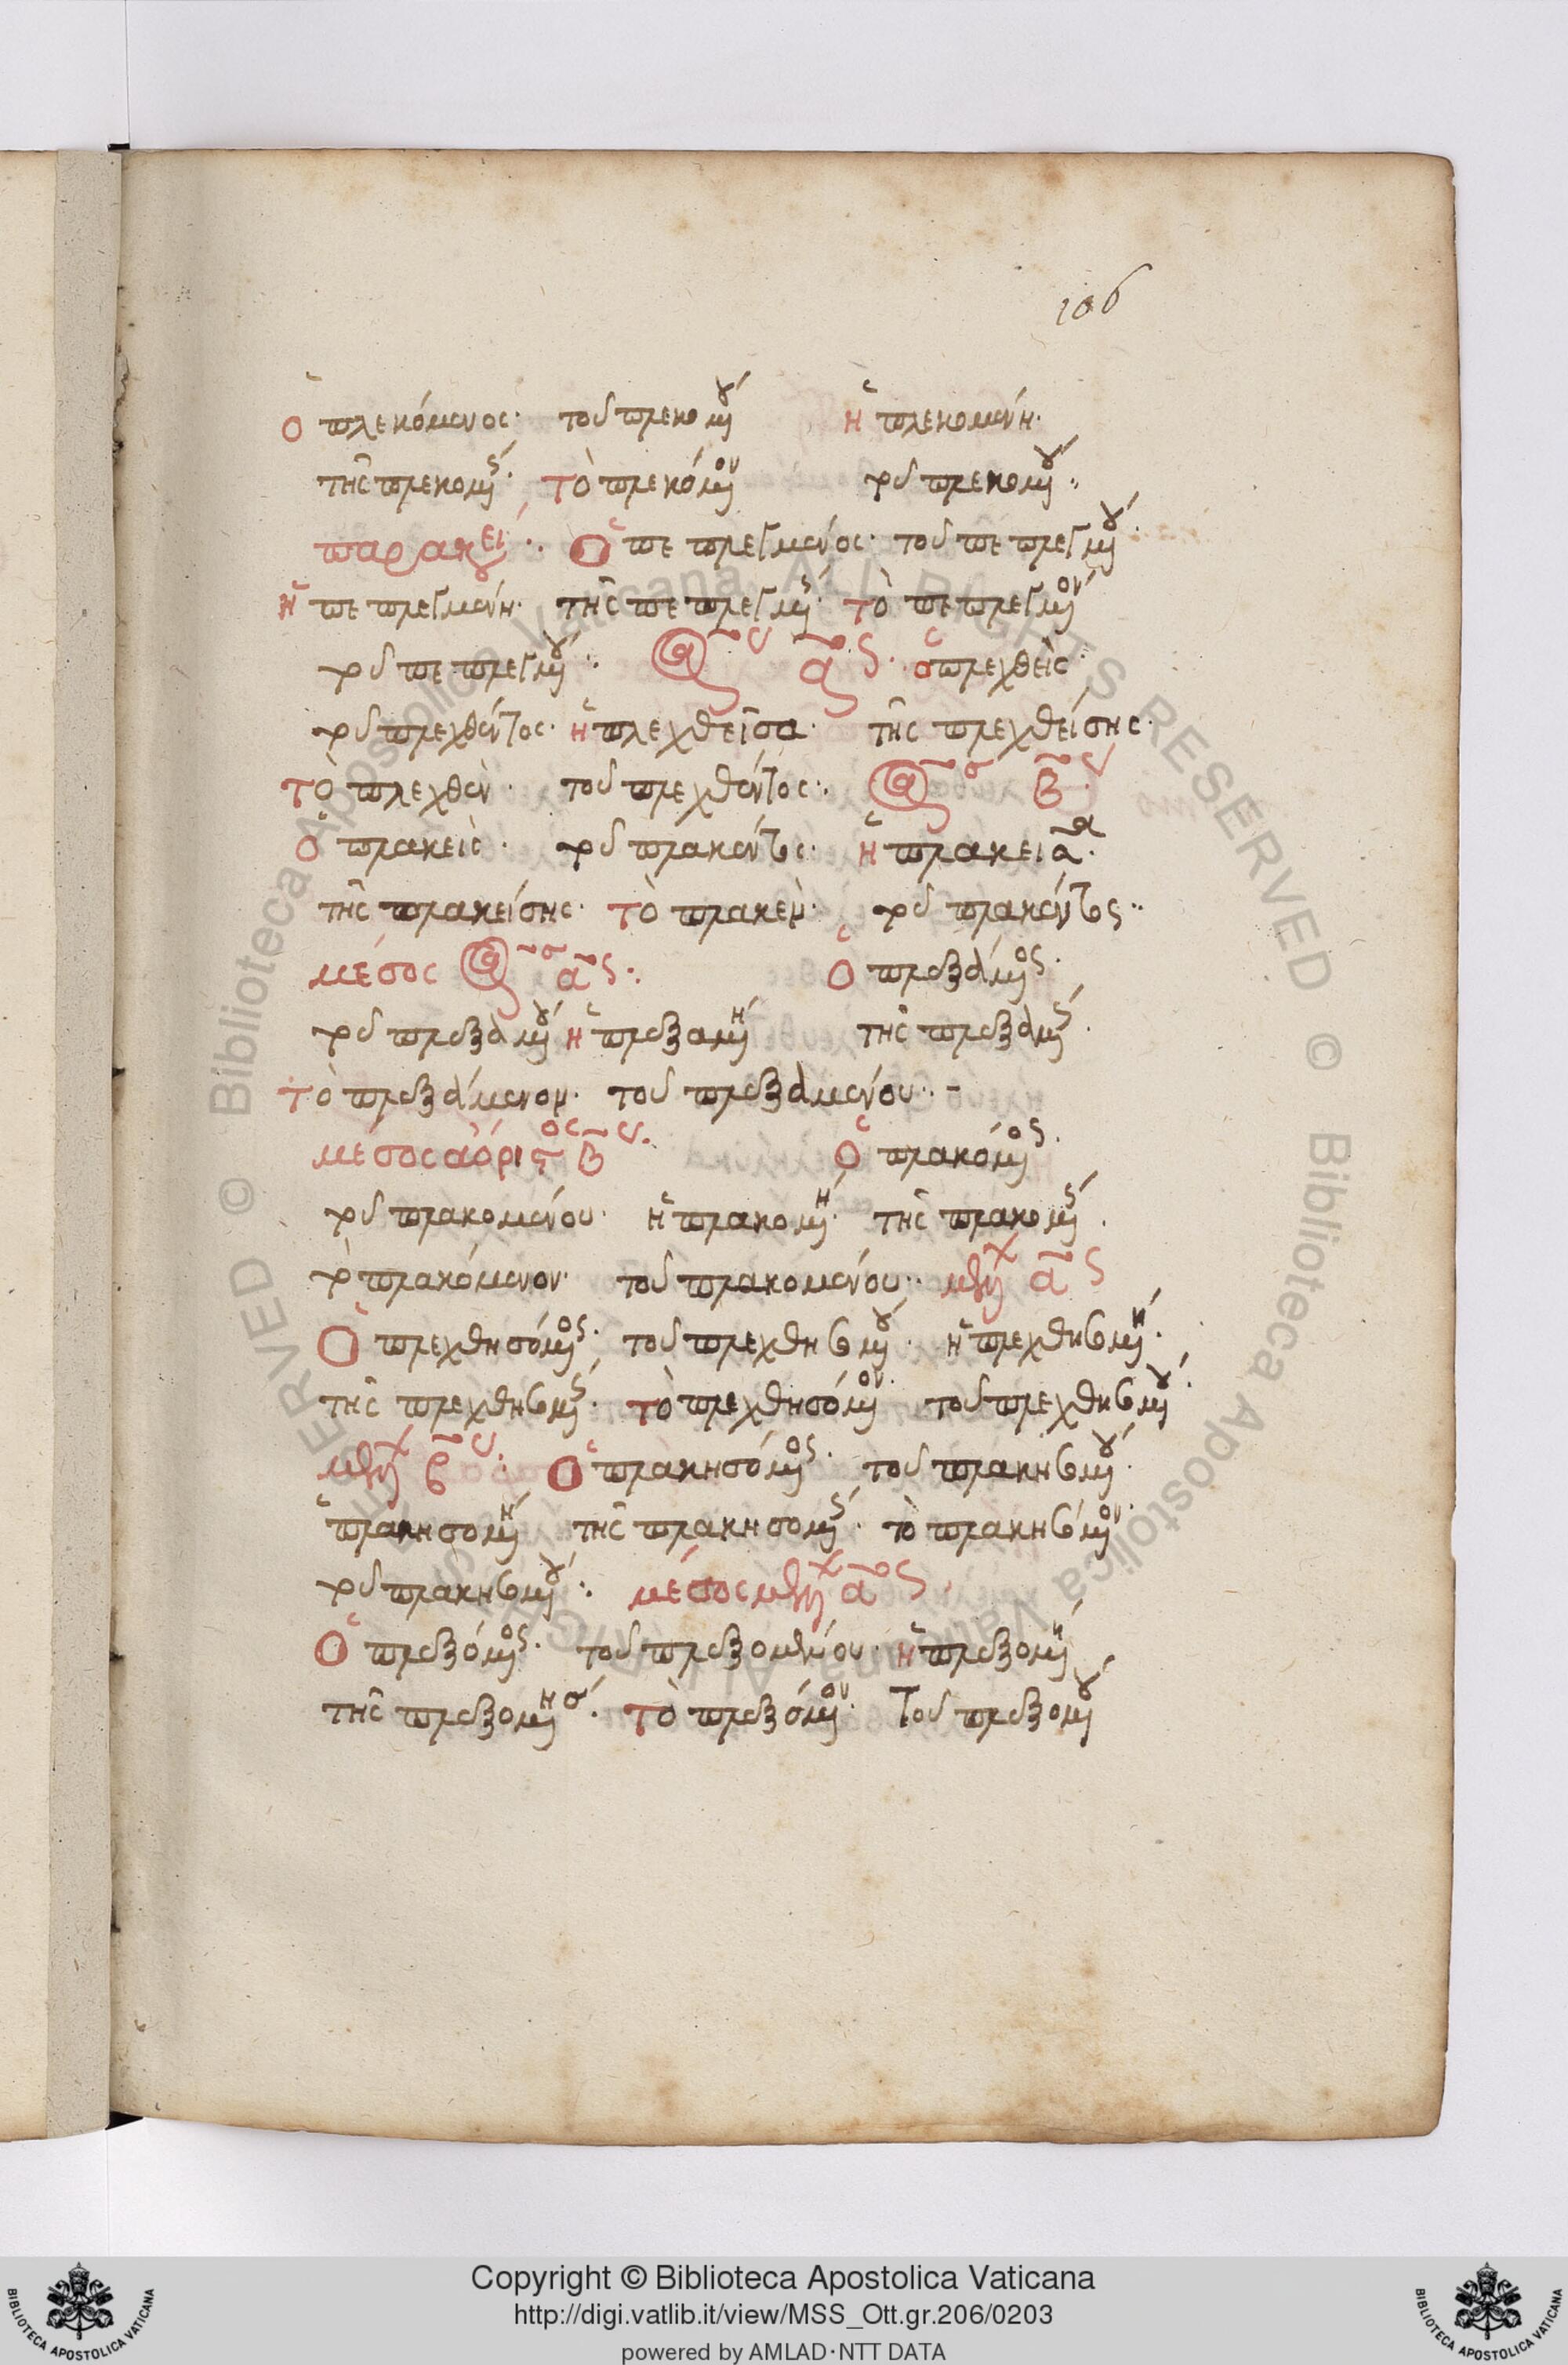 106
ὁ πλεκόμενος· τοῦ πλεκομένου ἡ πλεκομένη·
τῆς πλεκομένης· τὸ πλεκόμενον τοῦ πλεκομένου··
παρακει· Ὁ πεπλεγμένος· τοῦ πεπλεγμένου·
ἡ πεπλεγμένη· τῆς πεπλεγμένης· τὸ πεπλεγμένον
τοῦ πεπλεγμένου·· ας ὁ πλεχθεὶς·
τοῦ πλεχθέντος· ἡ πλεχθεῖσα· τῆς πλεχθείσης·
τὸ πλεχθὲν· τοῦ πλεχθέντος·· β
ὁ πλακεὶς· τοῦ πλακέντος· ἡ πλακεῖσα·
τῆς πλακείσης· τὸ πλακὲν· τοῦ πλακέντος··
μέσος ας· Ὁ πλεξάμενος·
τοῦ πλεξαμένου ἡ πλεξαμένη τῆς πλεξαμένης·
τὸ πλεξάμενον· τοῦ πλεξαμένου·-
μέσος αόριστος β· Ὁ πλακόμενος·
τοῦ πλακομένου· ἡ πλακομένη· τῆς πλακομένης·
τὸ πλακόμενον· τοῦ πλακομένου·· μέλλων ας
Ὁ πλεχθησόμενος· τοῦ πλεχθησομένου· ἡ πλεχθησομένη·
τῆς πλεχθησομένης· τὸ πλεχθησόμενον· τοῦ πλεχθησομένου·
μέλλων β· Ὁ πλακησόμενος· τοῦ πλακησομένου·
ἡ πλακησομένη τῆς πλακησομένης· τὸ πλακησόμενον·
τοῦ πλακησομένου·· μέσος μέλλων ας
Ὁ πλεξόμενος· τοῦ πλεξομένου· ἡ πλεξομένη
τῆς πλεξομένης· τὸ πλεξόμενον· τοῦ πλεξομένου
Copyright © Biblioteca Apostolica Vaticana
http://digi.vatlib.it/view/MSS_Ott.gr.206/0203
powered by AMLAD·NTT DATA